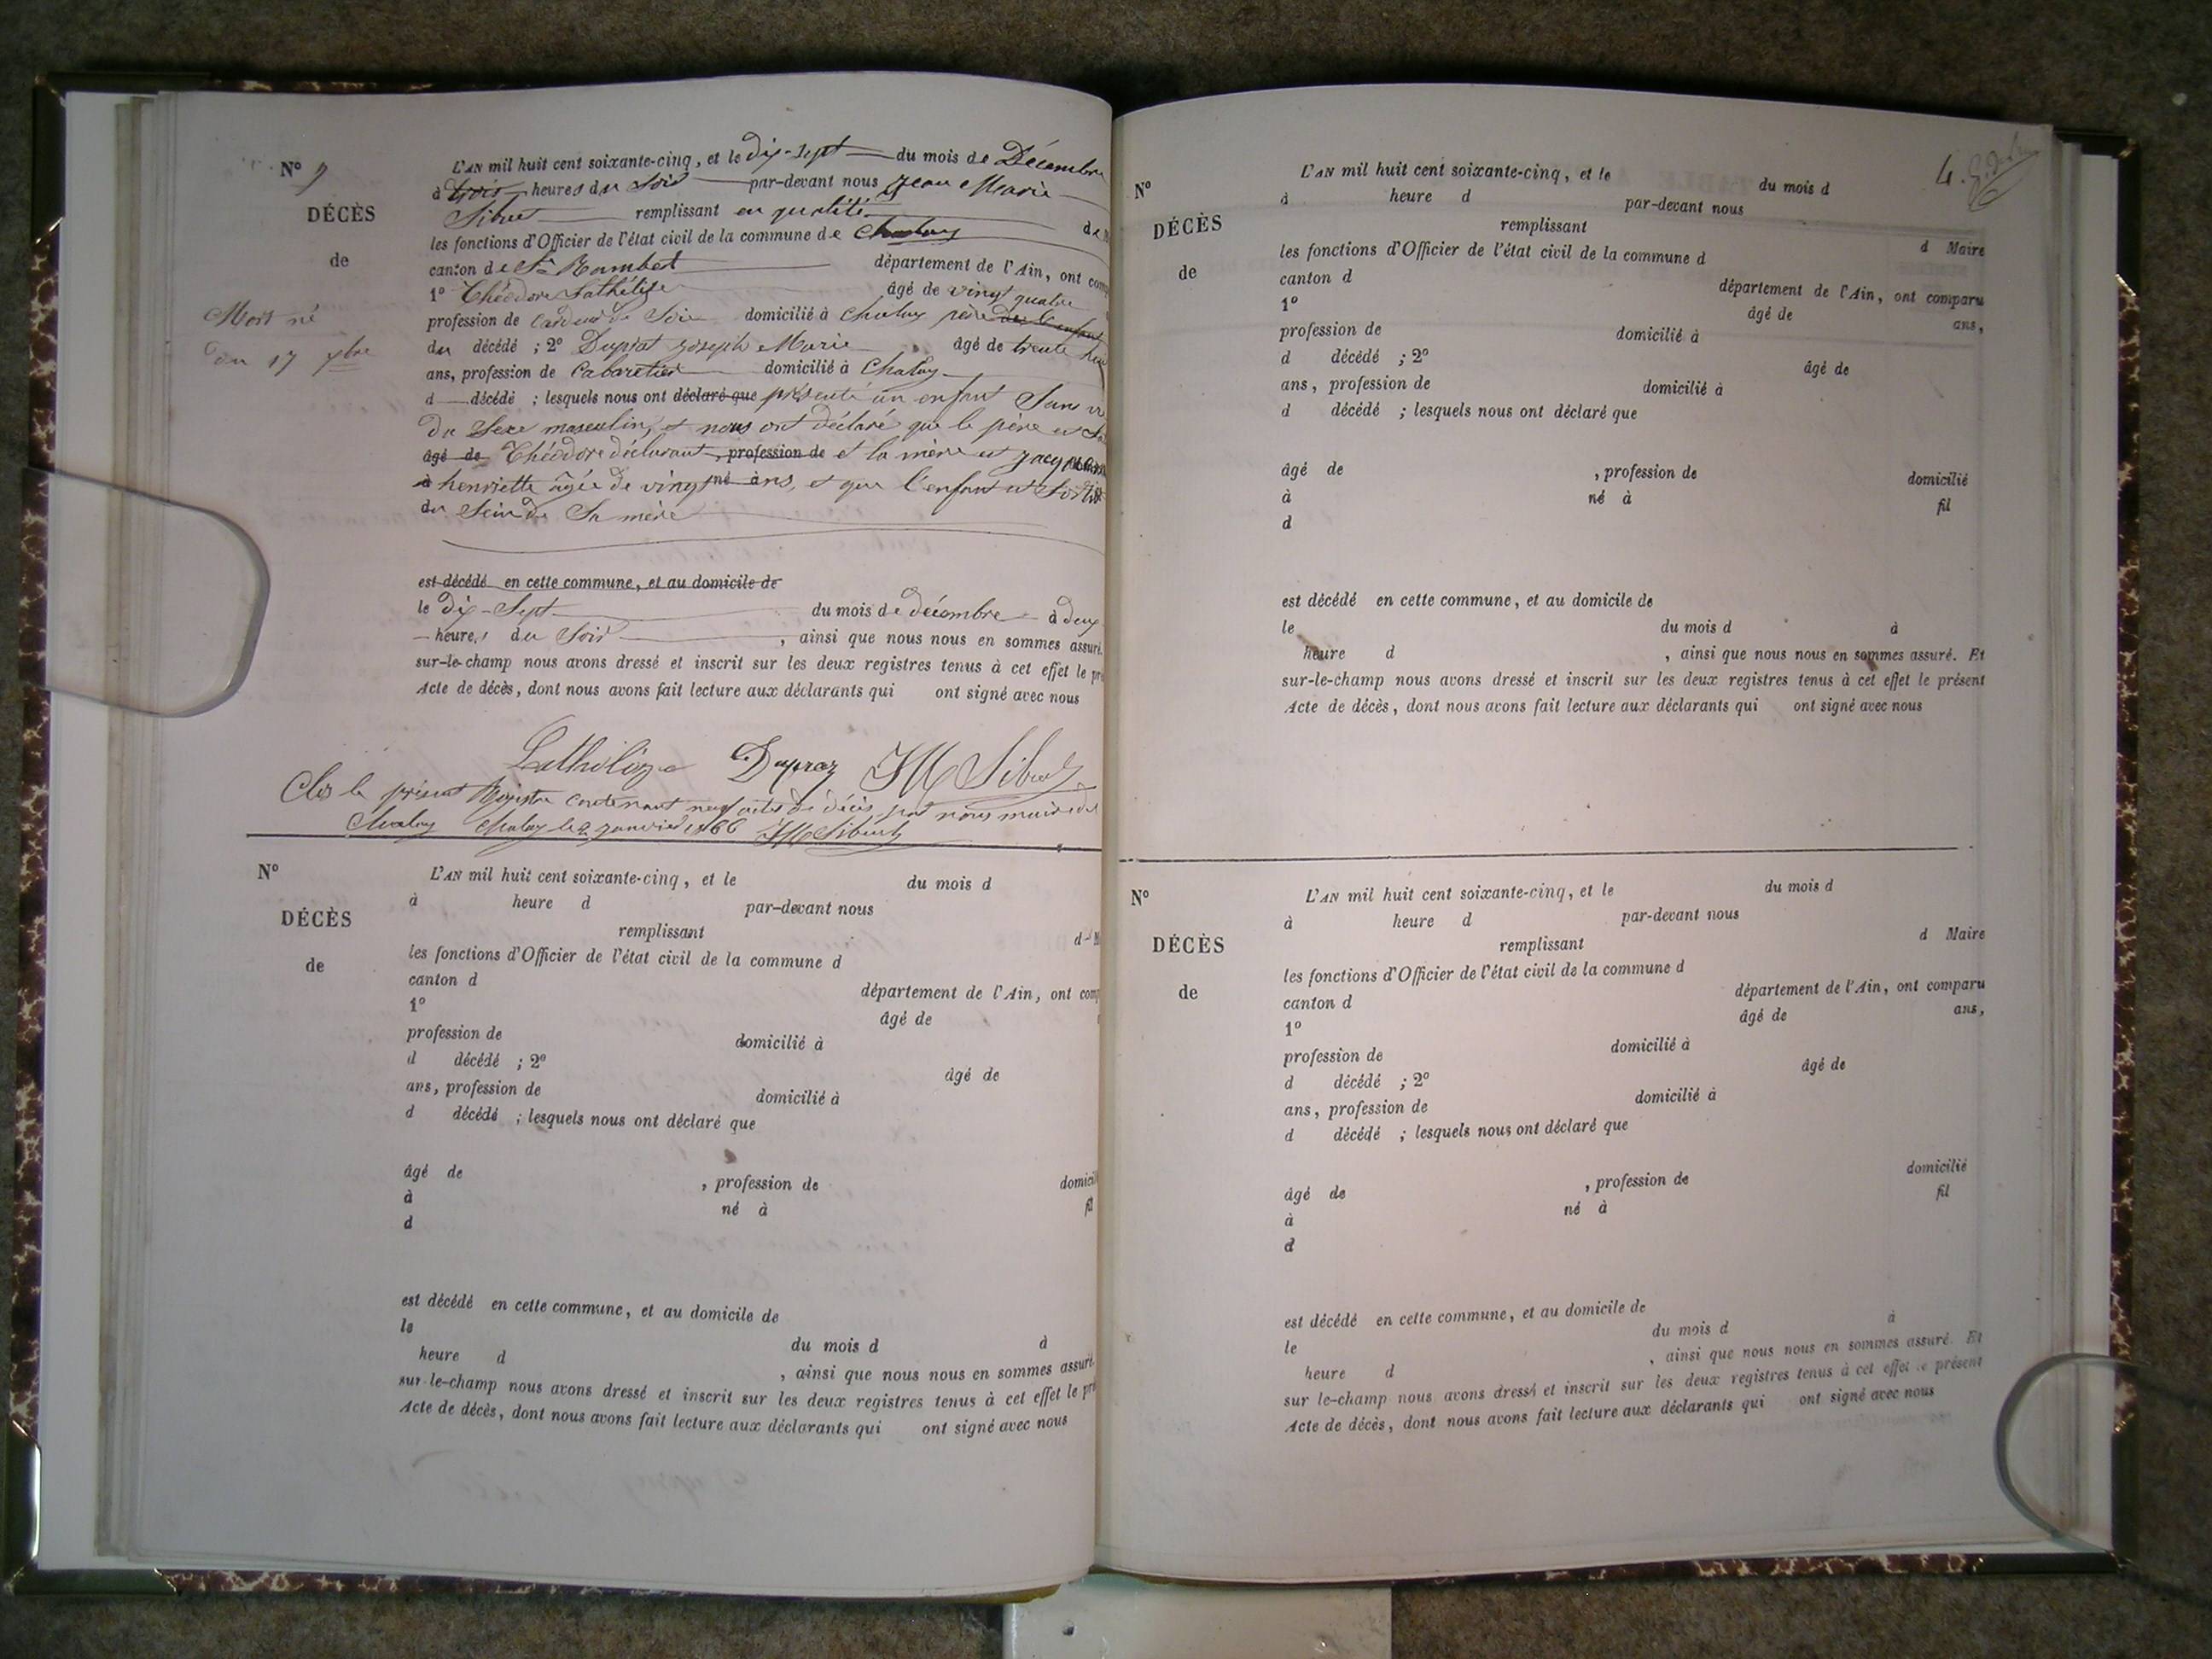 N° 9
DÉCÈS
de
Mort né
du 17 Xbre
L'AN mil huit cent soixante-cinq, et le dix-sept du mois de Décembre
à trois heures du Soir par-devant nous Jean Marie
Sibuet remplissant en qualité de
les fonctions d'Officier de l'état civil de la commune de Chaley
canton de St Rambert département de l'Ain, ont comp
1° Théodore Lathélize âgé de vingt quatre
profession de Cardeur de Soie domicilié à Chaley père de l'enfant
du décédé ; 2° Dupraz Joseph Marie âgé de trente
ans, profession de Cabaretier domicilié à Chaley
d décédé ; lesquels nous ont déclaré que présenté un enfant Sans vie
du Sexe masculin, et nous ont déclaré que le père est
âgé de Théodore déclarant, profession de et la mère est
à henriette âgée de vingt né ans, et que l'enfant est Sorti
du Sein de Sa mère
est décédé en cette commune, et au domicile de
le dix-Sept du mois de décembre à deux
heures du Soir, ainsi que nous nous en sommes assuré.
sur-le-champ nous avons dressé et inscrit sur les deux registres tenus à cet effet le pré
Acte de décès, dont nous avons fait lecture aux déclarants qui ont signé avec nous
Lathélize Dupraz JM Sibuet
Clos le présent Registre contenant neuf actes de décès par nous maire de
Chaley Chaley le 2 janvier 1866 JM Sibuet
N°
DÉCÈS
de
L'AN mil huit cent soixante-cinq, et le du mois d
à heure d par-devant nous
remplissant d M
les fonctions d'Officier de l'état civil de la commune d
canton d département de l'Ain, ont comp
1° âgé de
profession de domicilié à
d décédé ; 2° âgé de
ans, profession de domicilié à
d décédé ; lesquels nous ont déclaré que
âgé de , profession de domicil
à né à fil
d
est décédé en cette commune, et au domicile de
le du mois d à
heure d , ainsi que nous nous en sommes assuré.
sur-le-champ nous avons dressé et inscrit sur les deux registres tenus à cet effet le pré
Acte de décès, dont nous avons fait lecture aux déclarants qui ont signé avec nous
4.
N°
DÉCÈS
de
L'AN mil huit cent soixante-cinq, et le du mois d
à heure d par-devant nous
remplissant d Maire
les fonctions d'Officier de l'état civil de la commune d
canton d département de l'Ain, ont comparu
1° âgé de ans,
profession de domicilié à
d décédé ; 2° âgé de
ans, profession de domicilié à
d décédé ; lesquels nous ont déclaré que
âgé de , profession de domicilié
à né à fil
d
est décédé en cette commune, et au domicile de
le du mois d à
heure d , ainsi que nous nous en sommes assuré. Et
sur-le-champ nous avons dressé et inscrit sur les deux registres tenus à cet effet le présent
Acte de décès, dont nous avons fait lecture aux déclarants qui ont signé avec nous
N°
DÉCÈS
de
L'AN mil huit cent soixante-cinq, et le du mois d
à heure d par-devant nous
remplissant d Maire
les fonctions d'Officier de l'état civil de la commune d
canton d département de l'Ain, ont comparu
1° âgé de ans,
profession de domicilié à
d décédé ; 2° âgé de
ans, profession de domicilié à
d décédé ; lesquels nous ont déclaré que
âgé de , profession de domicilié
à né à fil
d
est décédé en cette commune, et au domicile de
le du mois d à
heure d , ainsi que nous nous en sommes assuré. Et
sur le-champ nous avons dressé et inscrit sur les deux registres tenus à cet effet le présent
Acte de décès, dont nous avons fait lecture aux déclarants qui ont signé avec nous